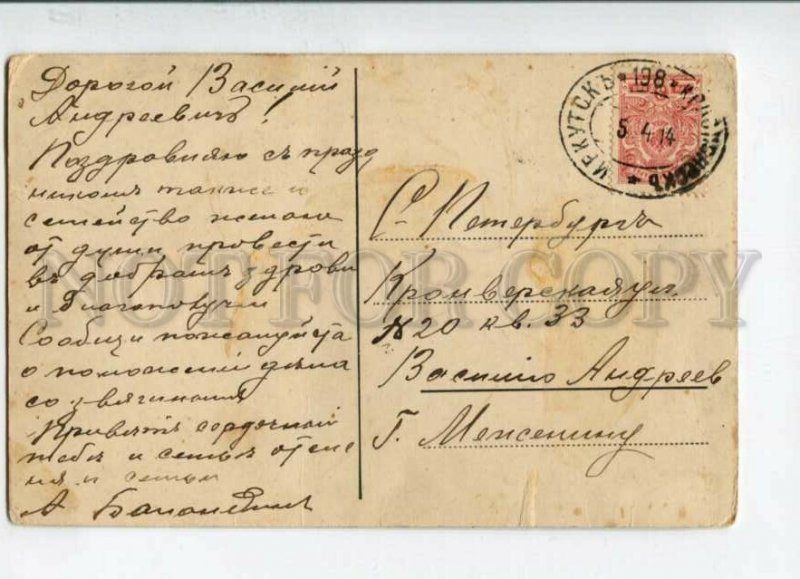 Дорогой Василий
Андреевичъ!
Поздровляю съ празд
никомъ также и
семейство желаю
от души провести
въ добромъ здрови
и благополучии
Сообщи пожалуйста
о положении дела
со
Приветъ сердечной
тебе и семье от ме
ня и семьи
А
ИРКУТСКЪ * 198 *
5 4 14
С. Петербургъ
Кронверская ул.
№ 20 кв. 33
Василию Андреев
Г. Меженину
NOT FOR COPY